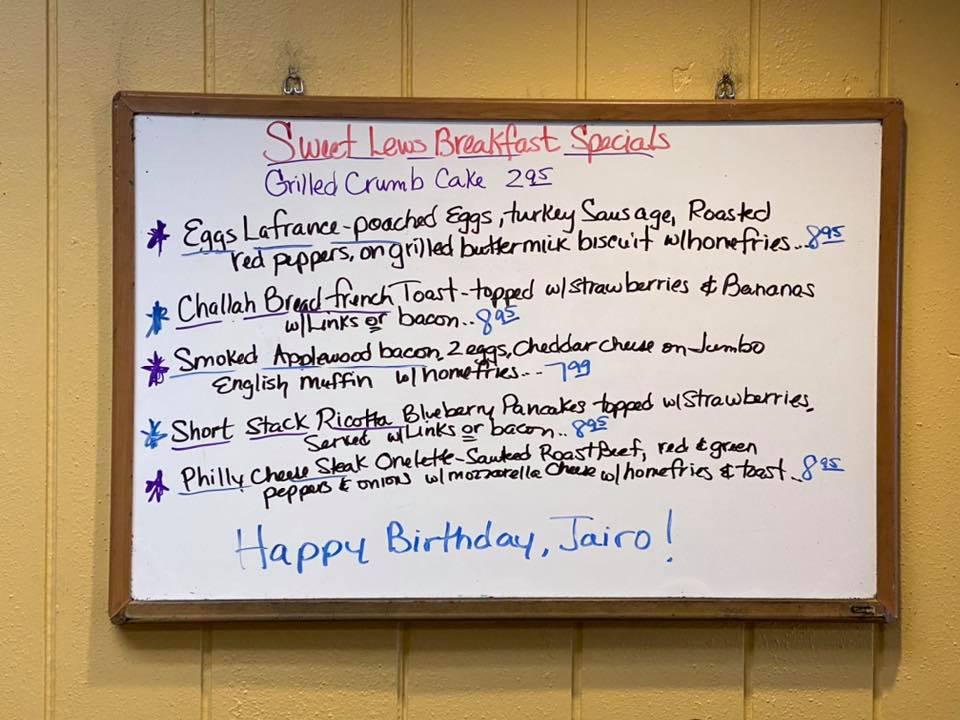 Sweet Lews Breakfast Specials
Grilled Crumb Cake 2 95
Eggs Lafrance-poached Eggs, turkey Sausage, Roasted
red peppers, on grilled buttermilk biscuit w/homefries... 8 95
Challah Bread french Toast-topped w/strawberries & Bananas
w/Links or bacon.. 8 95
Smoked Applewood bacon, 2 eggs, cheddar cheese on Jumbo
English muffin w/homefries... 7 99
Short Stack Ricotta Blueberry Pancakes topped w/strawberries.
Served w/Links or bacon.. 8 95
Philly Cheese Steak Omelette-Sauteed Roast Beef, red & green
peppers & onions w/mozzarella cheese w/homefries & toast.. 8 95
Happy Birthday, Jairo!